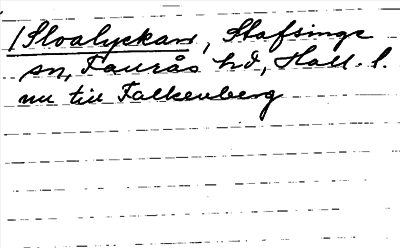 /Sloalyckan, Stafsinge
sn, Faurås hd, Hall. l.
nu till Falkenberg